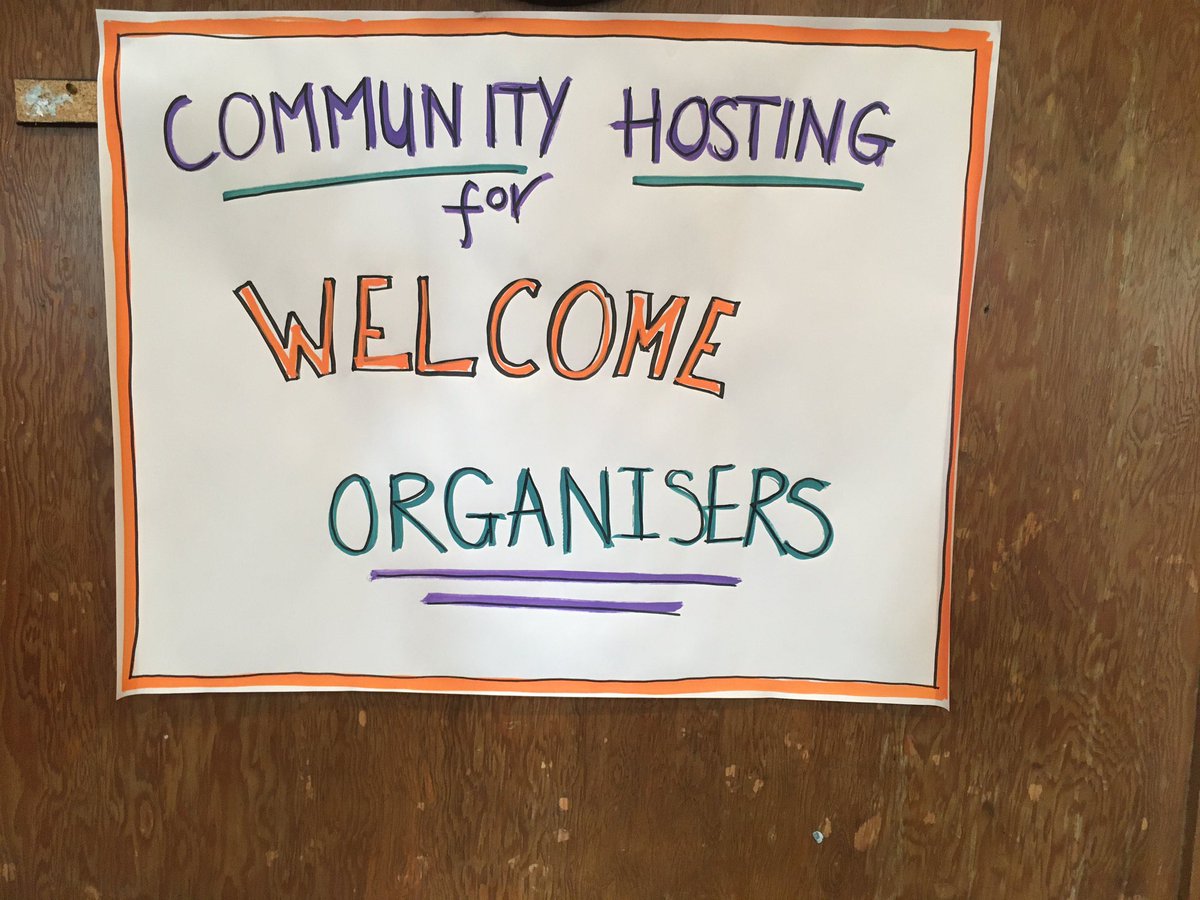 COMMUNITY HOSTING
for
WELCOME
ORGANISERS